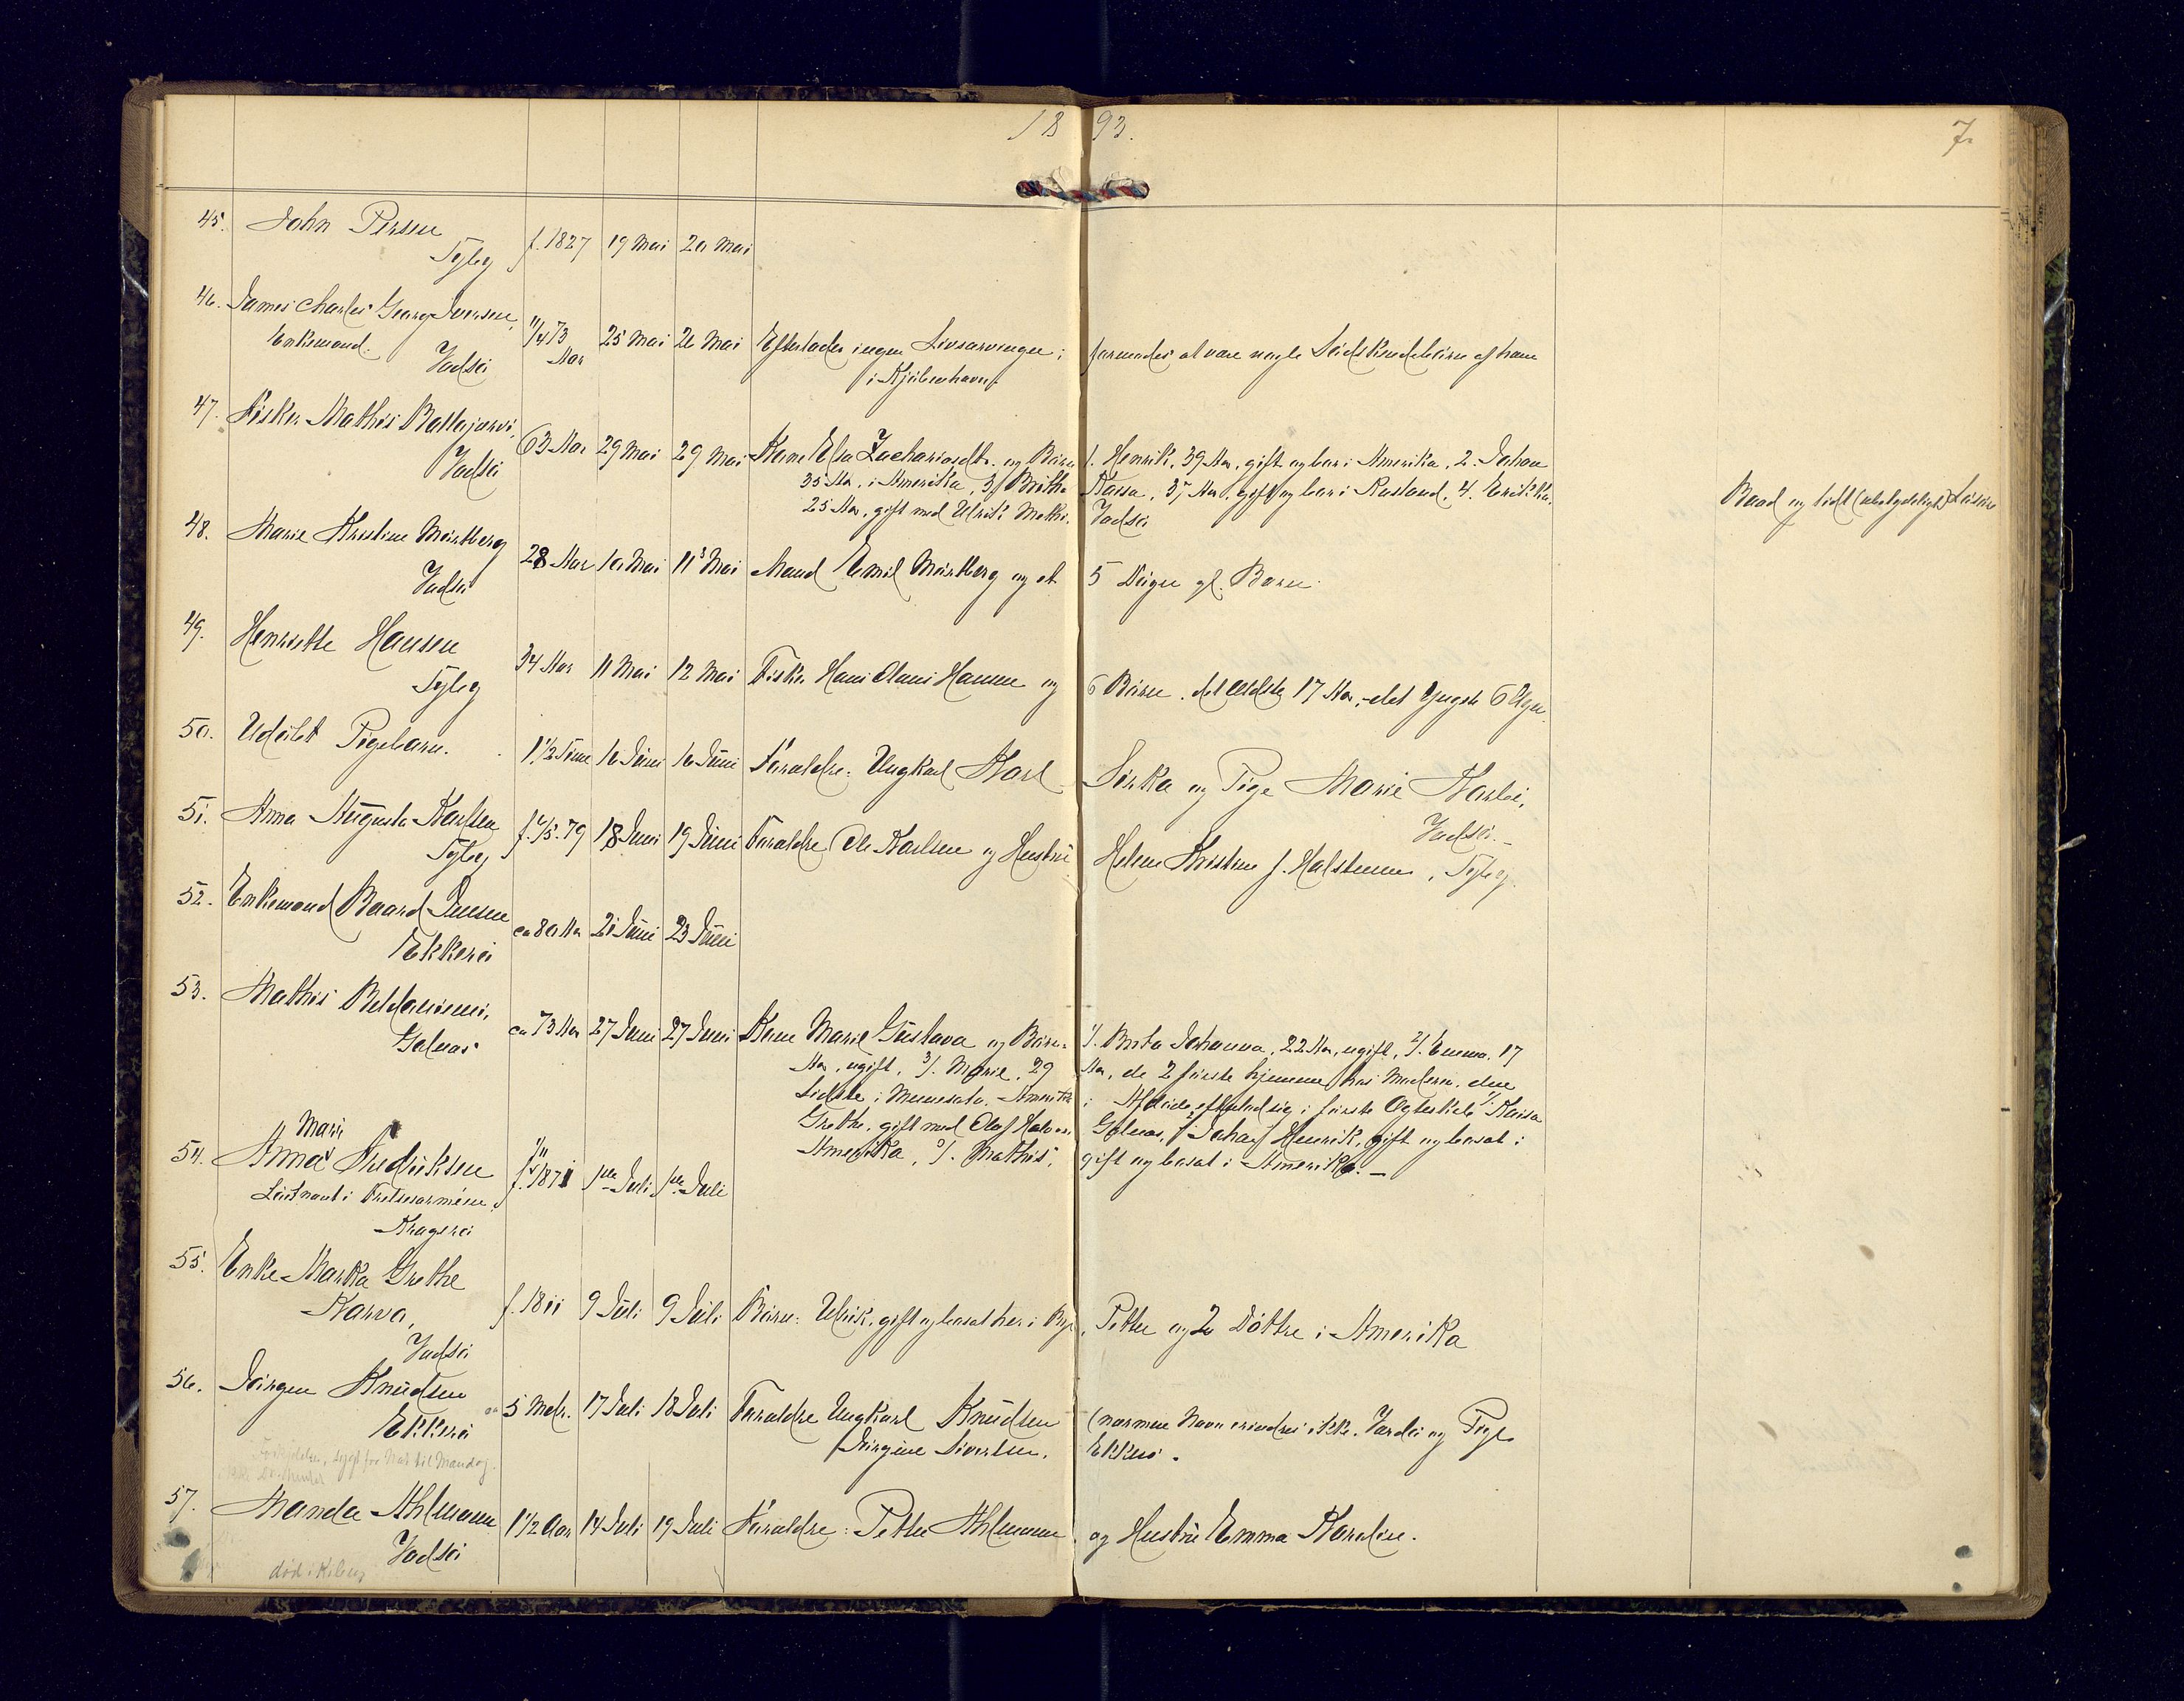 1893.
7.
45. John Persen
Tyby
f. 1827
19 Mai
20 Mai
46. James Charles Georg Iversen,
Enkemand.
Vadsö
73
Aar
25 Mai
26 Mai
Efterlader ingen Livsarvinger; formodes at være nogle Södskendebörn af ham
i Kjöbenhavn.
47. Fisker Mathis
Vadsö
63 Aar
29 Mai
29 Mai
Kone Elsa Zachariasdtr. og Börn 1. Henrik, 39 Aar, gift og bor i Amerika, 2. Johan
35 Aar, i Amerika, 3. Britha Kaisa, 37 Aar, gift og bor i Rusland, 4.
25 Aar, gift med Ulrik Vadsö
Baad og lidt (ubetydeligt) Lösöre
48. Marie Kristine Mörtberg
Vadsö
28 Aar
10 Mai
11 Mai
Mand Emil Mörtberg og et 5 Döger gl. Barn.
49. Henriette Hansen
Tyby
34 Aar
11 Mai
12 Mai
Fisker Hans Olaus Hansen og 6 Börn, det ældste 17 Aar, det yngste 6 Uger.
50. Udöbt Pigebarn.
1 1/2 Time
16 Juni
16 Juni
Foraldre: Ungkarl Karl Sirka og Pige Marie
Vadsö.
51. Anna Augusta Karlsen
Tyby
f. 4/5. 79
18 Juni
19 Juni
Foraldre Ole Karlsen og Hustru Helene Kristine f. Halstensen, Tyby.
52. Enkemand Baard Jensen
Ekkerö
ca 80 Aar
21 Juni
23 Juni
53. Mathis
Golnæs
ca 73 Aar
27 Juni
27 Juni
Kone Marie Gustava og Börn: 1/. Brita Johanna, 22 Aar, ugift, 2/. Emma, 17
Aar, ugift, 3/. Marie, 29 Aar, de 2 förste hjemme hos Moderen, den
sidste i Minnesota. Amerika i Afdöde efterlod sig i förste Ægteskab 1/. Kaisa
Grethe, gift med Olaf Golnæs, 2/. Johan Henrik, gift og bosat i
Amerika, 3/. Mathis, gift og bosat i Amerika. —
54. Anna Marie Fredriksen
Löitnant i Frelsesarmeen,
Kragerö
f. 1871
1ste Juli
1ste Juli
55. Enke Marka Grethe
Karvo,
Vadsö
f. 1811
9 Juli
9 Juli
Börn: Ulrik, gift og bosat her i By, Petter og 2 Döttre i Amerika
56. Jörgen Knudsen
Ekkerö
ca 5 Mdr.
17 Juli
18 Juli
Foraldre Ungkarl Knudsen (nærmere Navn erindres ikke. Vardö og Pige
Jörgine Sivertsen. Ekkerö.
sygt fra Nat til Mandag.
57. Manda Ahlmann
Vadsö
1 1/2 Aar
14 Juli
19 Juli
Foraldre: Petter Ahlmann og Hustru Emma Karoline.
död i Kiberg